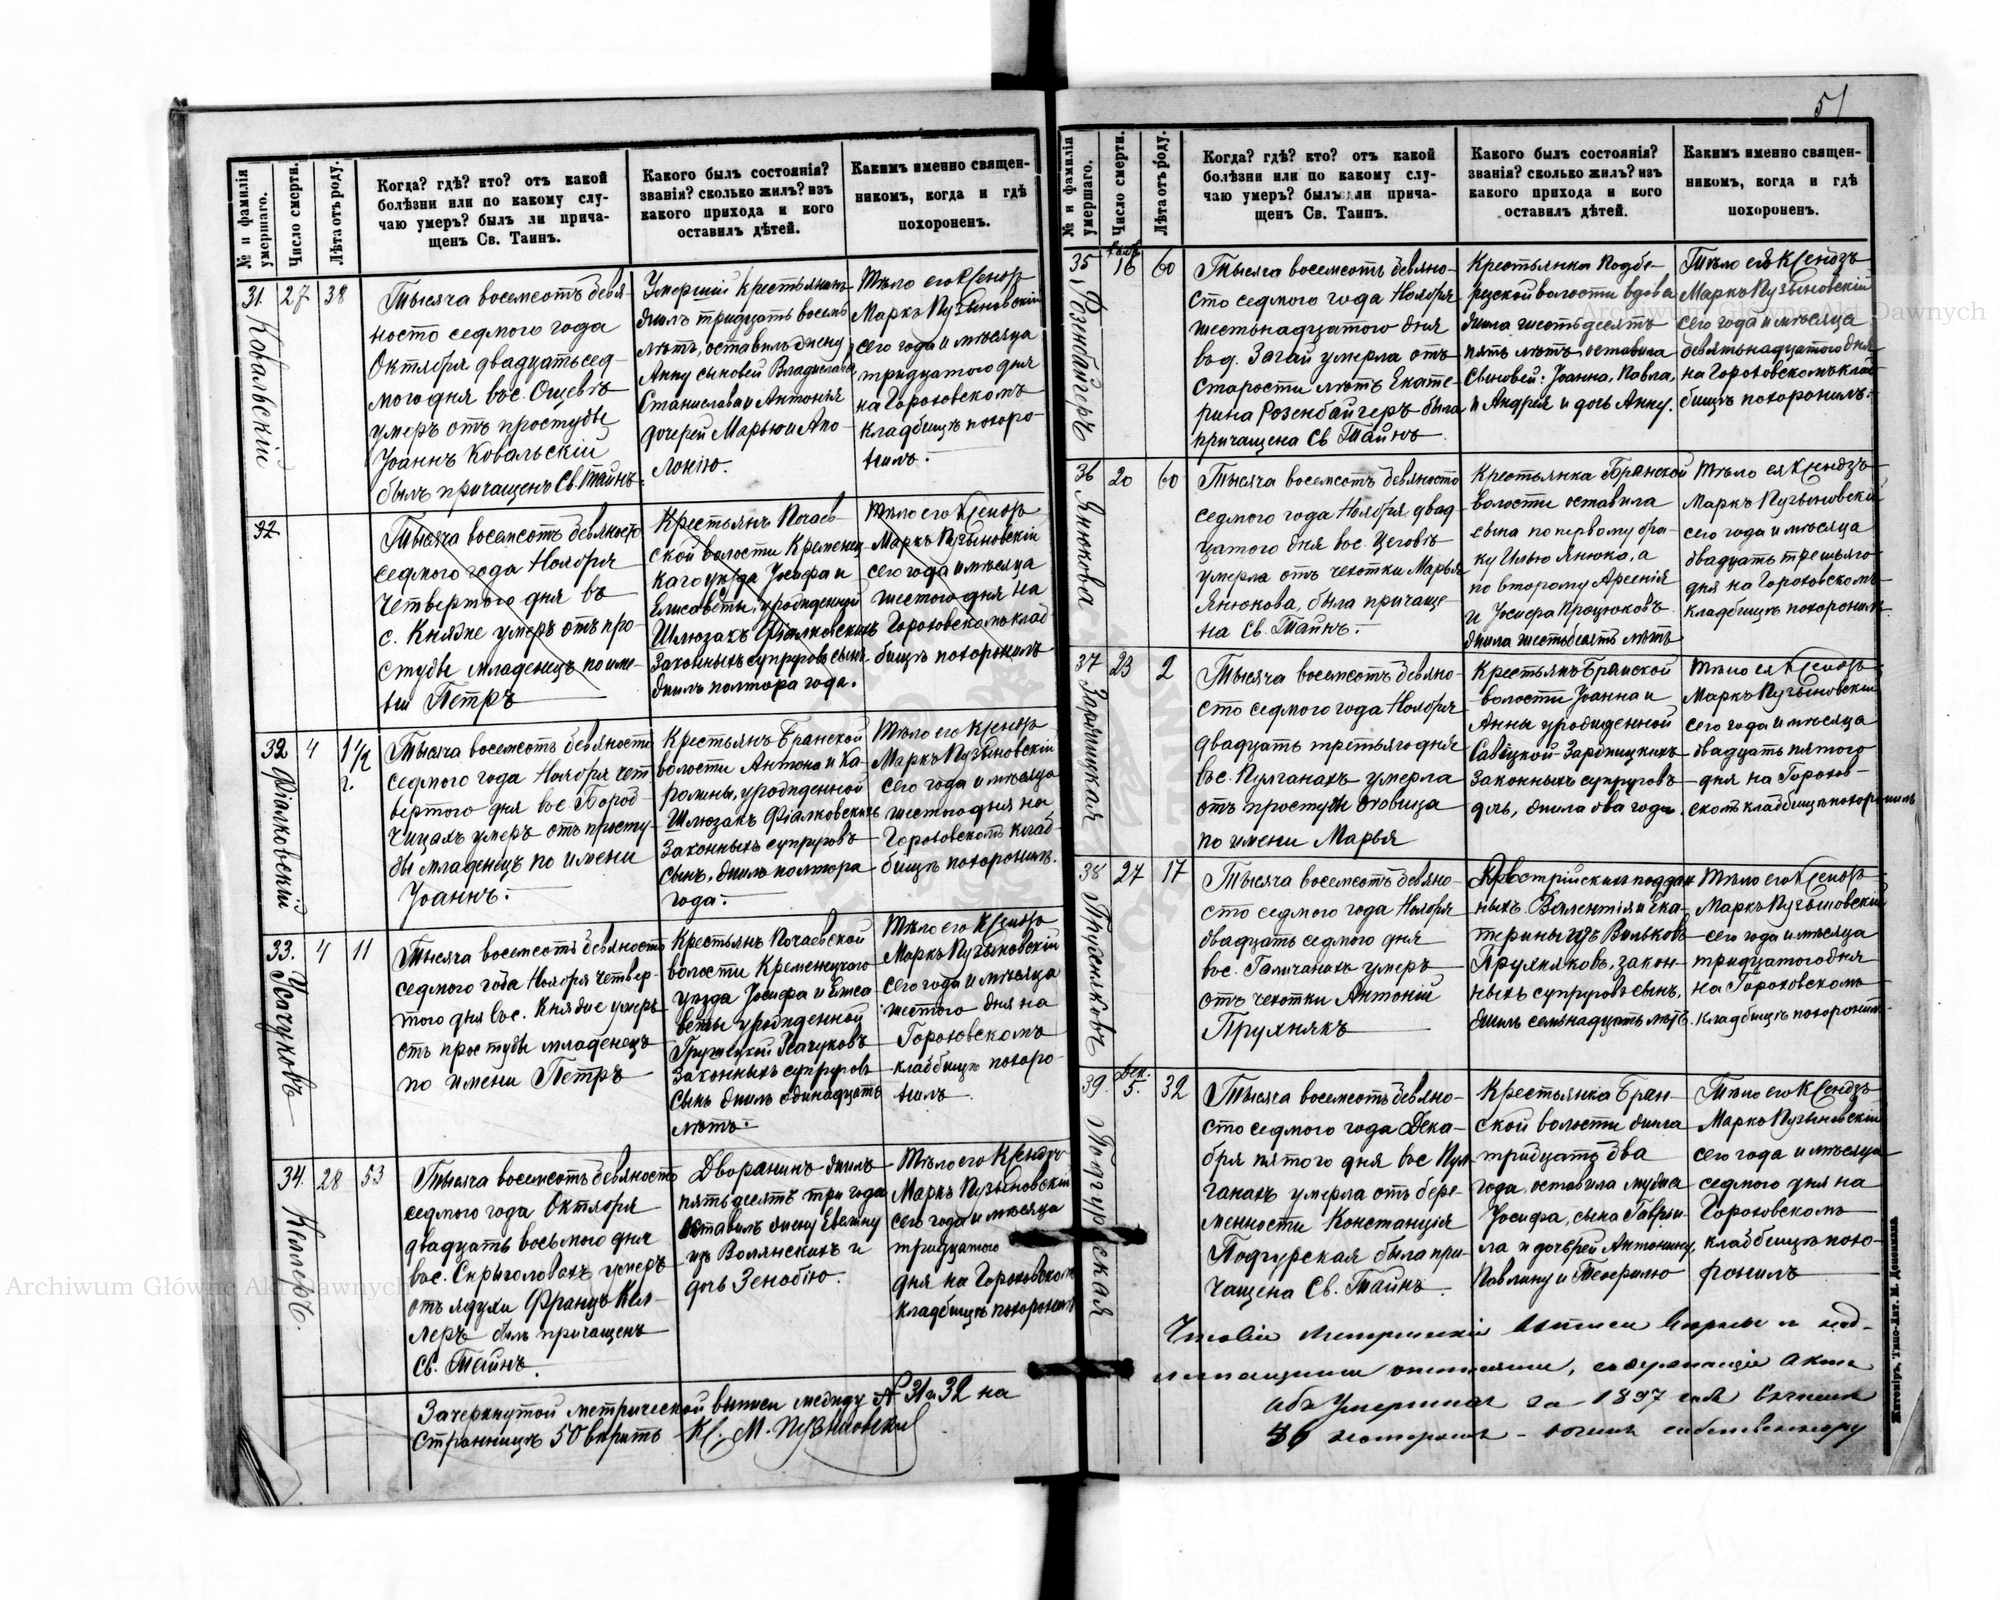 51
№ и фамилія умершаго.
Число смерти.
Лѣта отъ роду.
Когда? гдѣ? кто? отъ какой
болѣзни или по какому слу-
чаю умеръ? былъ ли прича-
щенъ Св. Таинъ.
Какого былъ состоянія?
званія? сколько жилъ? изъ
какого прихода и кого
оставилъ дѣтей.
Какимъ именно священ-
никомъ, когда и гдѣ
похороненъ.
31. Ковальскій
27
38
Тысяча восемсотъ девя
ность седмого года
Октября двадцать сед-
мого дня вс. Ощевѣ
умеръ отъ простуды
Іоаннъ Ковальскій
былъ причащенъ Св. Тайнъ.
Умершій крестьянинъ
жилъ тридцать восемь
лѣтъ, оставилъ жену
Анну сыновей Владислава,
Станислава и Антонія
дочерей Марью и Апо-
лонію.
Тѣло его Ксендзъ
Маркъ Пузыновскій
сего года и мѣсяца
тридцатого дня
на Гороховскомъ
кладбищѣ похоро-
нилъ.
32
Тысяча восемсотъ девяносто
седмого года Ноября
четвертого дня въ
с. Княже умеръ отъ про-
студы младенецъ по име-
ни Петръ
Крестьянъ Почаев-
ской волости Кременец
каго уѣзда Іосифа и
Елисаветы, урожденной
Шлюзакъ Фіалковскихъ
законныхъ супруговъ сынъ
жилъ полтора года.
Тѣло его Ксендзъ
Маркъ Пузыновскій
сего года и мѣсяца
шестого дня на
Гороховскомъ клад-
бищѣ похоронилъ
32 Фіалковскій
4
1 1/2 г.
Тысяча восемсотъ девяносто
седмого года Ноября чет
вертого дня вс. Бород-
чицахъ умеръ отъ просту-
ды младенецъ по имени
Іоаннъ.
Крестьянъ Бранской
волости Антона и Ка-
ролины, урожденной
Шлюзакъ Фіалковскихъ
законныхъ супруговъ
сынъ, жилъ полтора
года.
Тѣло его Ксендзъ
Маркъ Пузыновскій
сего года и мѣсяца
шестого дня на
Гороховскомъ клад-
бищѣ похоронилъ.
33. Усачуковъ
4
11
Тысяча восемсотъ девяносто
седмого года Ноября четвер-
того дня вс. Княже умеръ
отъ простуды младенецъ
по имени Петръ
Крестьянъ Почаевской
волости Кременецкаго
уѣзда Іосифа и Елиса
веты урожденной
Усачуковъ
законныхъ супруговъ
сынъ жилъ одинадцать
лѣтъ.
Тѣло его Ксендзъ
Маркъ Пузыновскій
сего года и мѣсяца
шестого дня на
Гороховскомъ
кладбищѣ похоро-
нилъ
34. Келлеръ.
28
53
Тысяча восемсотъ девяносто
седмого года Октября
двадцать восьмого дня
вс. Скрыголовахъ умеръ
отъ ядухи Францъ Кел-
леръ былъ причащенъ
Св. Тайнъ.
Дворянинъ жилъ
пятьдесятъ три года
оставилъ жену Евгену
изъ Волянскихъ и
дочь Зенобію.
Тѣло его Ксендзъ
Маркъ Пузыновскій
сего года и мѣсяца
тридцатого
дня на Гороховском
кладбищѣ похоронилъ
Зачеркнутой метрической выписи между № 31 и 32 на
страницѣ 50 вѣрить Кс. М. Пузыновскій
№ и фамилія умершаго.
Число смерти.
Лѣта отъ роду.
Когда? гдѣ? кто? отъ какой
болѣзни или по какому слу-
чаю умеръ? былъ ли прича-
щенъ Св. Таинъ.
Какого былъ состоянія?
званія? сколько жилъ? изъ
какого прихода и кого
оставилъ дѣтей.
Какимъ именно священ-
никомъ, когда и гдѣ
похороненъ.
35 Розенбайгеръ
16
60
Тысяча восемсотъ девяно-
сто седмого года Ноября
шестьнадцатого дня
въ д. Загай умерла отъ
старости лѣтъ Екате-
рина Розенбайгеръ была
причащена Св Тайнъ.
Крестьянка Подбе-
резской волости вдова
жила шестьдесятъ
пять лѣтъ оставила
сыновей: Іоанна, Павла,
и Андрея и дочь Анну.
Тѣло её Ксендзъ
Маркъ Пузыновскій
сего года и мѣсяца
девятьнадцатого дня
на Гороховскомъ клад
бищѣ похоронилъ.
36 Янюкова
20
60
Тысяча восемсотъ девяносто
седмого года Ноября двад
цатого дня вс. Цеговѣ
умерла отъ чехотки Марья
Янюкова, была причаще-
на Св. Тайнъ.
Крестьянка Бранской
волости оставила
сына по первому бра-
ку Илью Янюка, а
по второму Арсенія
и Іосифа Процюковъ
жила шестьдесятъ лѣтъ
Тѣло ея Ксендзъ
Маркъ Пузыновскій
сего года и мѣсяца
двадцать третьяго
дня на Гороховскомъ
кладбищѣ похоронилъ.
37 Зарѣницкая
23
2
Тысяча восемсотъ девяно-
сто седмого года Ноября
двадцать третьяго дня
въ с. Пулганахъ умерла
отъ простуды дѣвица
по имени Марья
Крестьянъ Бранской
волости Іоанна и
Анны урожденной
Савѣцкой Зарѣницкихъ
законныхъ супруговъ
дочь, жила два года.
Тѣло ея Ксендзъ
Маркъ Пузыновскій
сего года и мѣсяца
двадцать пятого
дня на Горохов-
скомъ кладбищѣ похоронилъ
38 Прухняковъ
27
17
Тысяча восемсотъ девяно-
сто седмого года Ноября
двадцать седмого дня
вс. Галичанахъ умеръ
отъ чехотки Антоній
Прухнякъ
Австрійскихъ поддан
ныхъ Валентія и Ека-
терины изъ Вильковъ
Прухняковъ, закон-
ныхъ супруговъ сынъ,
жилъ семьнадцать лѣтъ.
Тѣло его Ксендзъ
Маркъ Пузыновскій
сего года и мѣсяца
тридцатого дня
на Гороховскомъ
кладбищѣ похоронилъ.
39. Подгурская
Дек. 5.
32
Тысяча восемсотъ девяно-
сто седмого года Дека-
бря пятого дня вс Пул
ганахъ умерла отъ бере-
менности Констанція
Подгурская была при-
чащена Св. Тайнъ.
Крестьянка Бран-
ской волости жила
тридцать два
года, оставила мужа
Іосифа, сына Гаврі-
ла и дочерей Антонину,
Павлину и Теофилю
Тѣло его Ксендзъ
Маркъ Пузыновскій
сего года и мѣсяца
седмого дня на
Гороховскомъ
кладбищѣ похо-
ронилъ
объ умершихъ за 1897 годъ
Житомiръ, Типо-Лит. М. Дененмана
Archiwum Główne Akt Dawnych
Archiwum Główne Akt Dawnych